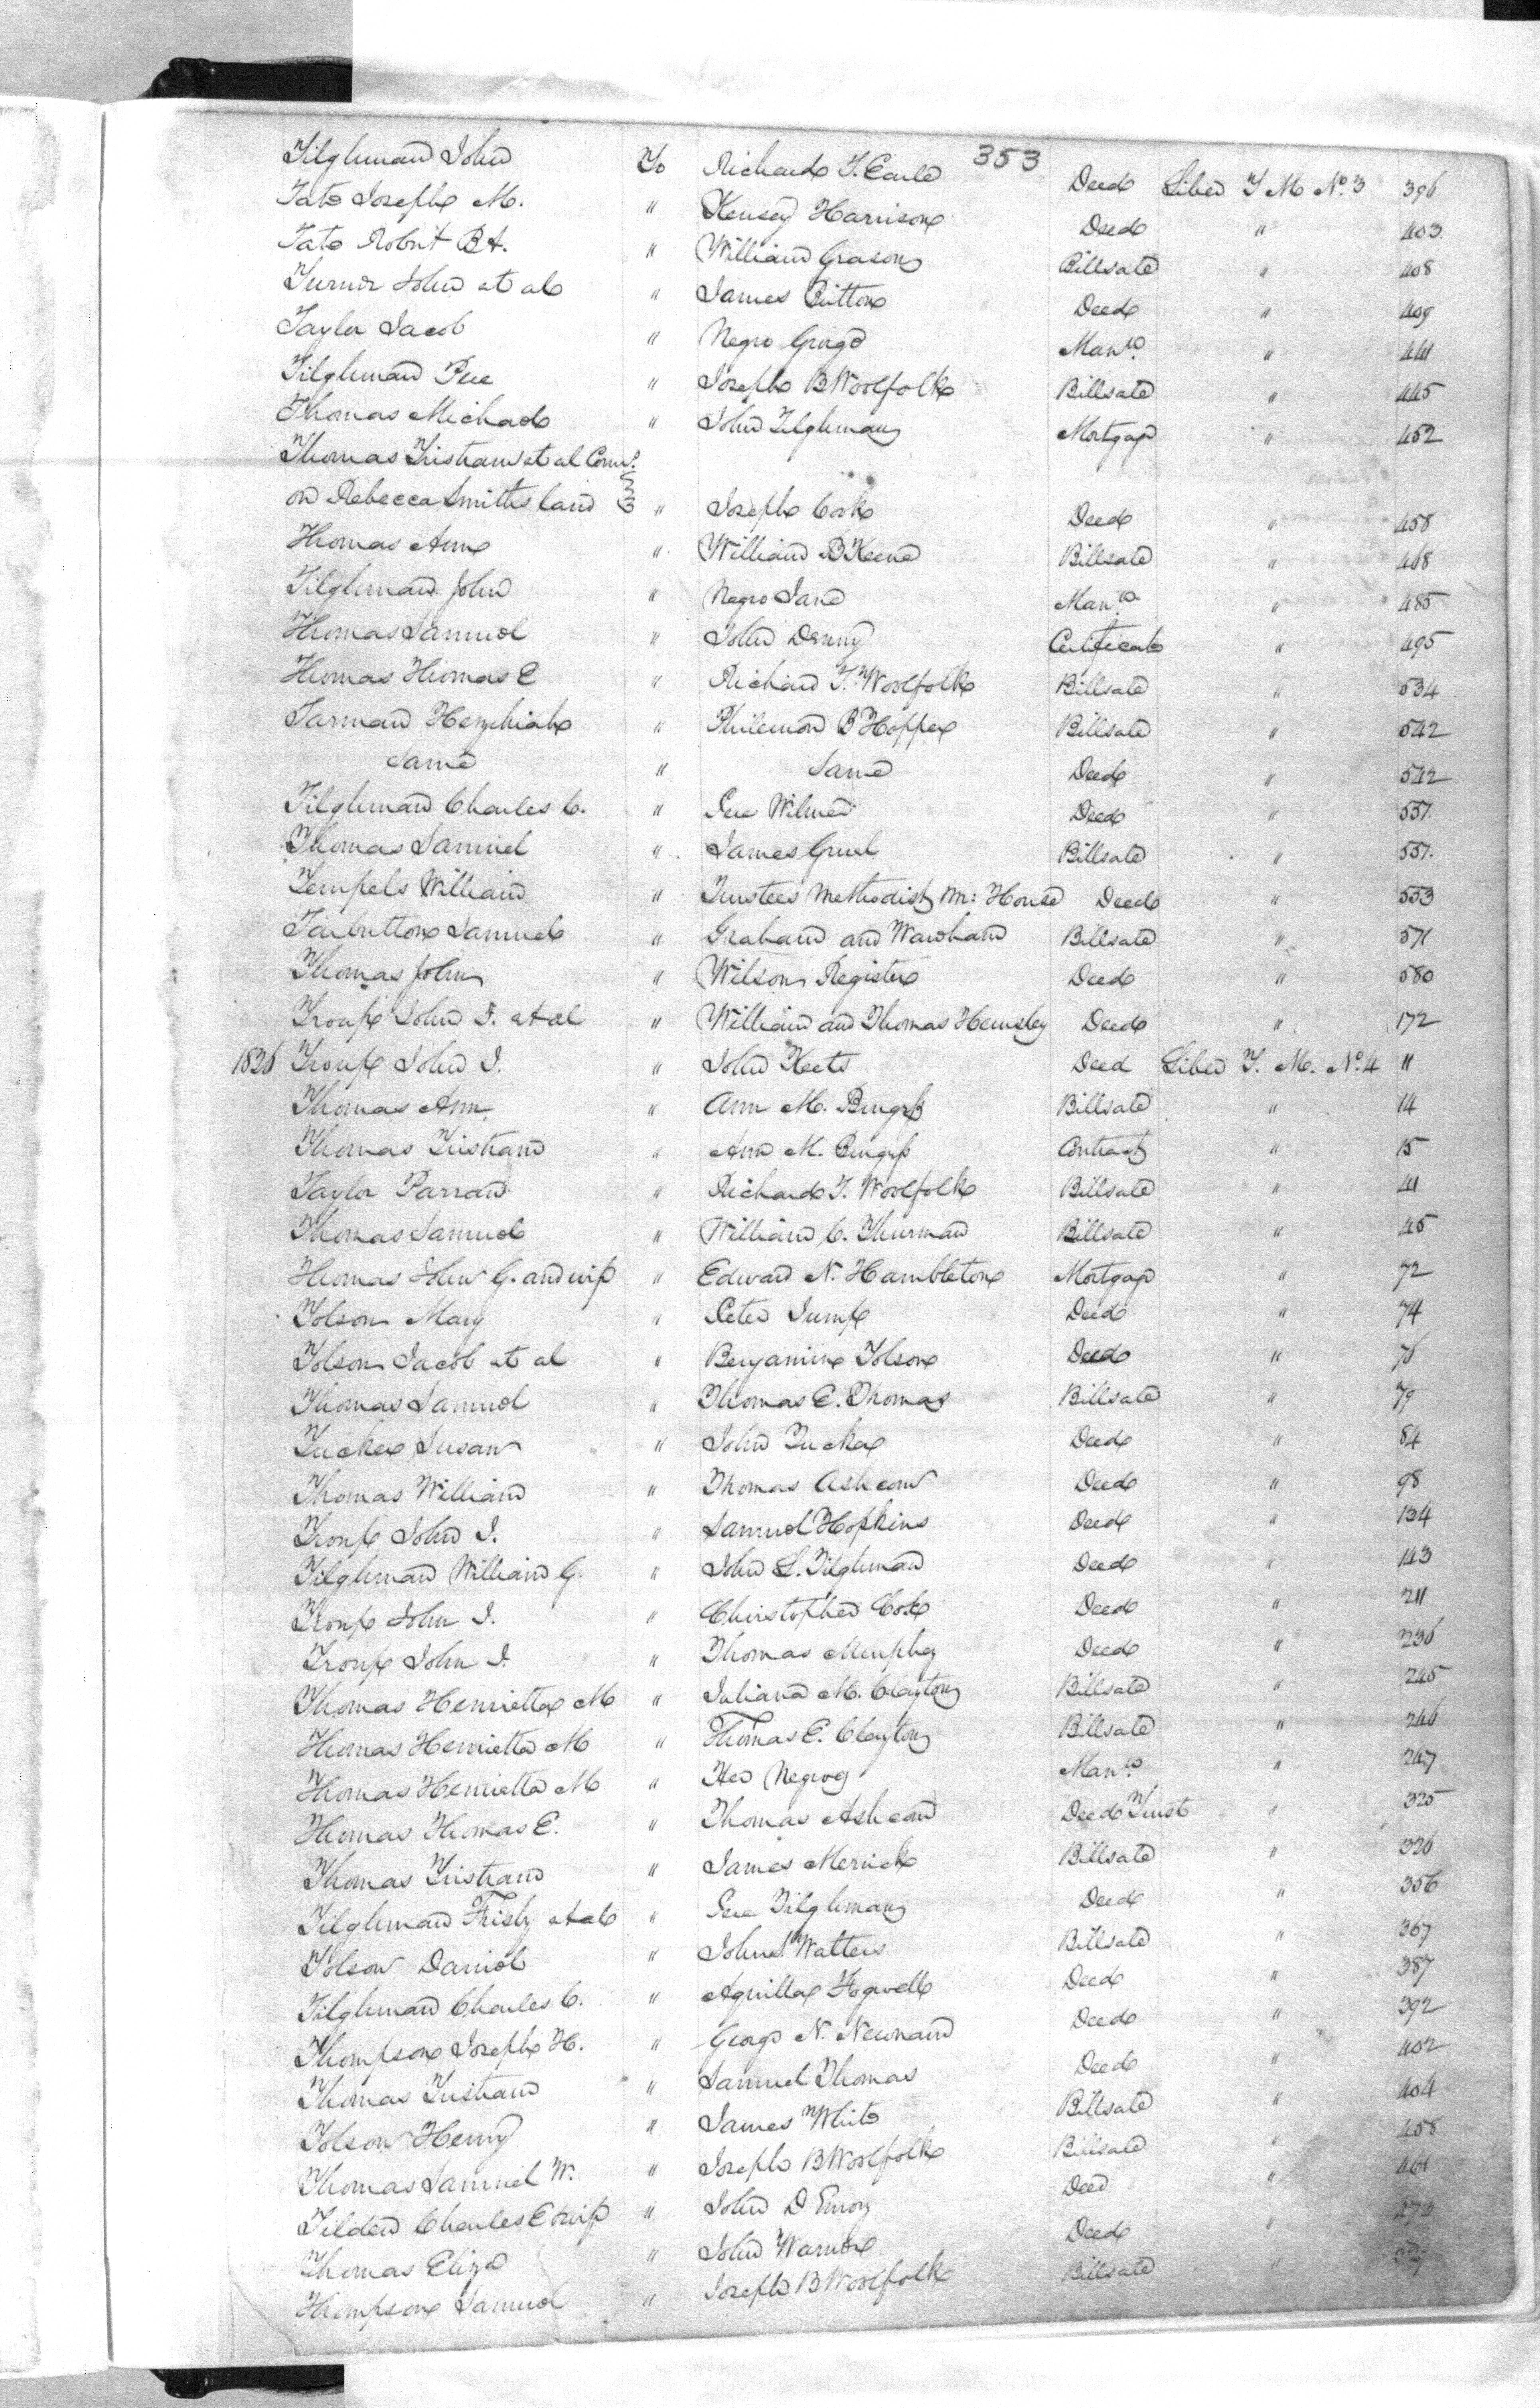 353
Tilghman John To Richard T. Earle Deed Liber T M No. 3 396
Tate Joseph M. " Kensey Harrison Deed " 403
Tate Robert " William Grason Billsale " 408
Turner John et al " James Britton Deed " 409
Taylor Jacob " Negro George Mann. " 441
Tilghman Pere " Joseph B Woolfolk Billsale " 445
Thomas Michael " John Tilghman Mortgage " 452
Thomas Tristram et al Comrs.
on Rebecca Smiths land " Joseph Cook Deed " 458
Thomas Ann " William B Keene Billsale " 468
Tilghman John " Negro Jane Mann. " 485
Thomas Samuel " John Denny Certificate " 495
Thomas Thomas E " Richard T. Woolfolk Billsale " 534
Tarman Hezekiah " Philemon B Hopper Billsale " 542
Same " Same Deed " 542
Tilghman Charles C. " Pere Wilmer Deed " 551
Thomas Samuel " James Gruel Billsale " 551
Tempels William " Trustees Methodist M: House Deed " 553
Tarbutton Samuel " Graham and Warham Billsale " 571
Thomas John " Wilson Register Deed " 580
Troup John I. et al " William and Thomas Hemsley Deed " 172
1826 Troup John I. " John Keets Deed Liber T. M. No. 4 11
Thomas Ann " Ann M. Billsale " 14
Thomas Tristram " Ann M. Contract " 15
Taylor Parran " Richard T. Woolfolk Billsale " 41
Thomas Samuel " William C. Thurman Billsale " 45
Thomas John G. and wife " Edward N. Hambleton Mortgage " 72
Tolson Mary " Peter Jump Deed " 74
Tolson Jacob et al " Benjamin Tolson Deed " 76
Thomas Samuel " Thomas E. Thomas Billsale " 79
Tucker Susan " John Tucker Deed " 84
Thomas William " Thomas Ashcom Deed " 98
Troup John I. " Samuel Hopkins Deed " 134
Tilghman William G. " John L. Tilghman Deed " 143
Troup John I. " Christopher Cox Deed " 211
Troup John I. " Thomas Murphey Deed " 236
Thomas Henrietta M " Juliana M. Clayton Billsale " 245
Thomas Henrietta M " Thomas E. Clayton Billsale " 246
Thomas Henrietta M " Her Negroes Mann. " 247
Thomas Thomas E. " Thomas Ashcom Deed Trust " 325
Thomas Tristram " James Merrick Billsale " 326
Tilghman Frisby et al " Pere Tilghman Deed " 356
Tolson Daniel " John Walters Billsale " 367
Tilghman Charles C. " Aquilla Fogwell Deed " 387
Thompson Joseph H. " George N. Newnam Deed " 392
Thomas Tristram " Samuel Thomas Deed " 402
Tolson Henry " James White Billsale " 404
Thomas Samuel W. " Joseph B Woolfolk Billsale " 458
Tilden Charles E & wife " John D Emory Deed " 461
Thomas Eliza " John Warner Deed "
Thompson Samuel " Joseph B Woolfolk Billsale "